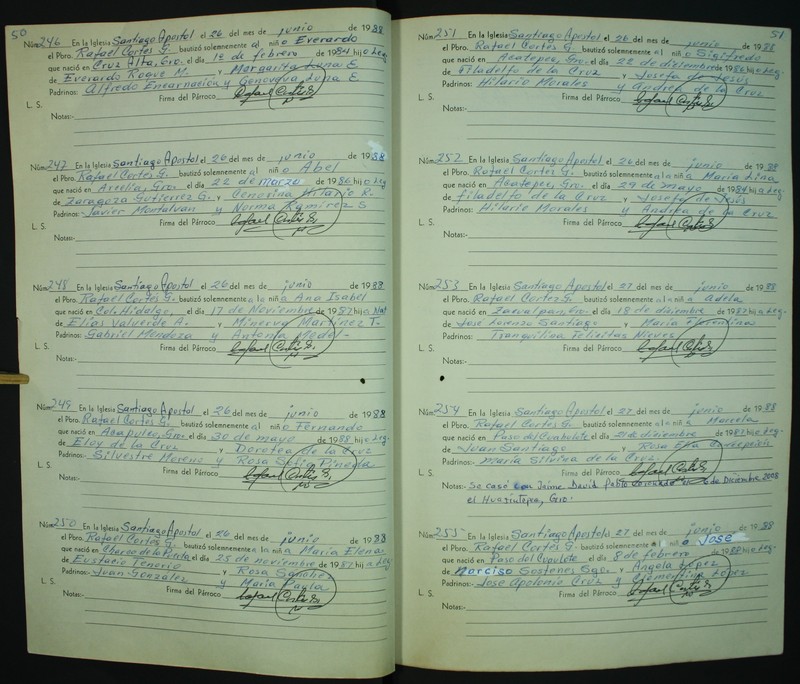 50
Núm. 246 En la Iglesia Santiago Apostol el 26 del mes de junio de 1988
el Pbro. Rafael Cortes G. bautizó solemnemente al niño Everardo
que nació en Cruz Alta, Gro. el día 12 de febrero de 1984 hijo Leg.
de Everardo Roque M. y Margarita Luna E
Padrinos: Alfredo Encarnación y Genoveva Luna E
Firma del Párroco Rafael Cortés G.
L. S.
Notas:
Núm. 247 En la Iglesia Santiago Apostol el 26 del mes de junio de 1988
el Pbro. Rafael Cortes G. bautizó solemnemente al niño Abel
que nació en Arcelia, Gro. el día 22 de marzo de 1986 hijo Leg
de Zaragoza Gutierrez G. y Cenovina Hilario R.
Padrinos: Javier Montalvan y Norma Ramirez S
Firma del Párroco Rafael Cortés G.
L. S.
Notas:
Núm. 248 En la Iglesia Santiago Apostol el 26 del mes de junio de 1988
el Pbro. Rafael Cortes G. bautizó solemnemente a la niña Ana Isabel
que nació en Col. Hidalgo, el día 17 de Noviembre de 1987 hija Nat
de Elias Valverde A. y Minerva Martinez T-
Padrinos: Gabriel Mendoza y Antonia Medel-
Firma del Párroco Rafael Cortés G.
L. S.
Notas:
Núm. 249 En la Iglesia Santiago Apostol el 26 del mes de junio de 1988
el Pbro. Rafael Cortes G. bautizó solemnemente al niño Fernando
que nació en Acapulco, Gro. el día 30 de mayo de 1988 hijo Leg.
de Eloy de la Cruz y Dorotea de la Cruz
Padrinos: Silvestre Moreno y Rosa Pineda
Firma del Párroco Rafael Cortés G.
L. S.
Notas:
Núm. 250 En la Iglesia Santiago Apostol el 26 del mes de junio de 1988
el Pbro. Rafael Cortes G. bautizó solemnemente a la niña Maria Elena
que nació en el día 25 de noviembre de 1987 hija Leg
de Eustacio Tenorio y Rosa Sanchez
Padrinos: Juan Gonzalez y Maria Paula
Firma del Párroco Rafael Cortés G.
L. S.
Notas:
51
Núm. 251 En la Iglesia Santiago Apostol el 26 del mes de junio de 1988
el Pbro. Rafael Cortes G. bautizó solemnemente al niño Sigifredo
que nació en Acatepec, Gro. el día 22 de diciembre de 1986 hijo Leg.
de Filadelfo de la Cruz y Josefa de Jesús
Padrinos: Hilario Morales y Andrea de la Cruz
Firma del Párroco Rafael Cortés G.
L. S.
Notas:
Núm. 252 En la Iglesia Santiago Apostol el 26 del mes de junio de 1988
el Pbro. Rafael Cortes G. bautizó solemnemente a la niña Maria Lina
que nació en Acatepec, Gro. el día 29 de mayo de 1984 hija Leg.
de Filadelfo de la Cruz y Josefa de Jesús
Padrinos: Hilario Morales y Andrea de la Cruz
Firma del Párroco Rafael Cortés G.
L. S.
Notas:
Núm. 253 En la Iglesia Santiago Apostol el 27 del mes de junio de 1988
el Pbro. Rafael Cortes G. bautizó solemnemente a la niña Adela
que nació en Zacualpan, Gro. el día 18 de diciembre de 1987 hija Leg.
de Jose Lorenzo Santiago y Maria Florentina
Padrinos: Tranquilina Felicitas Nieves
Firma del Párroco Rafael Cortés G.
L. S.
Notas:
Núm. 254 En la Iglesia Santiago Apostol el 27 del mes de junio de 1988
el Pbro. Rafael Cortes G. bautizó solemnemente a la niña Marcela
que nació en Paso del Cuahulote el día 21 de diciembre de 1987 hija Leg.
de Juan Santiago y Rosa Eva Concepción
Padrinos: Maria Silvina de la Cruz
Firma del Párroco Rafael Cortés G.
L. S.
Notas: Se casó con Jaime David Pablo de Diciembre 2008
el Huazintepec, Gro.
Núm. 255 En la Iglesia Santiago Apostol el 27 del mes de junio de 1988
el Pbro. Rafael Cortes G. bautizó solemnemente al niño Jose
que nació en Paso del Cuahulote el día 8 de febrero de 1988 hijo Leg.
de Narciso Sostenes Sgo. y Angela Lopez
Padrinos: Jose Apolonio Cruz y Clementina Lopez
Firma del Párroco Rafael Cortés G.
L. S.
Notas: